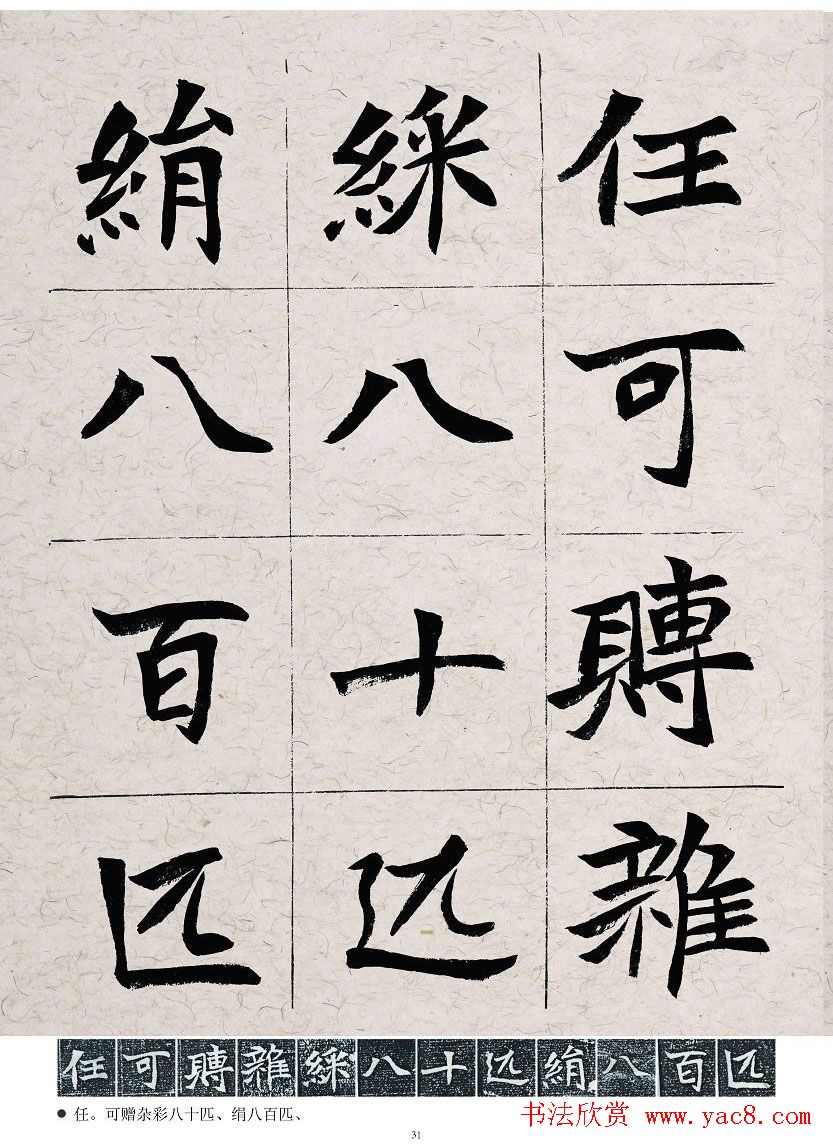 任可賻雜
綵八十匹
絹八百匹
任可賻雜綵八十匹絹八百匹
● 任。可赠杂彩八十匹、绢八百匹、
书法欣赏 www.yac8.com
31